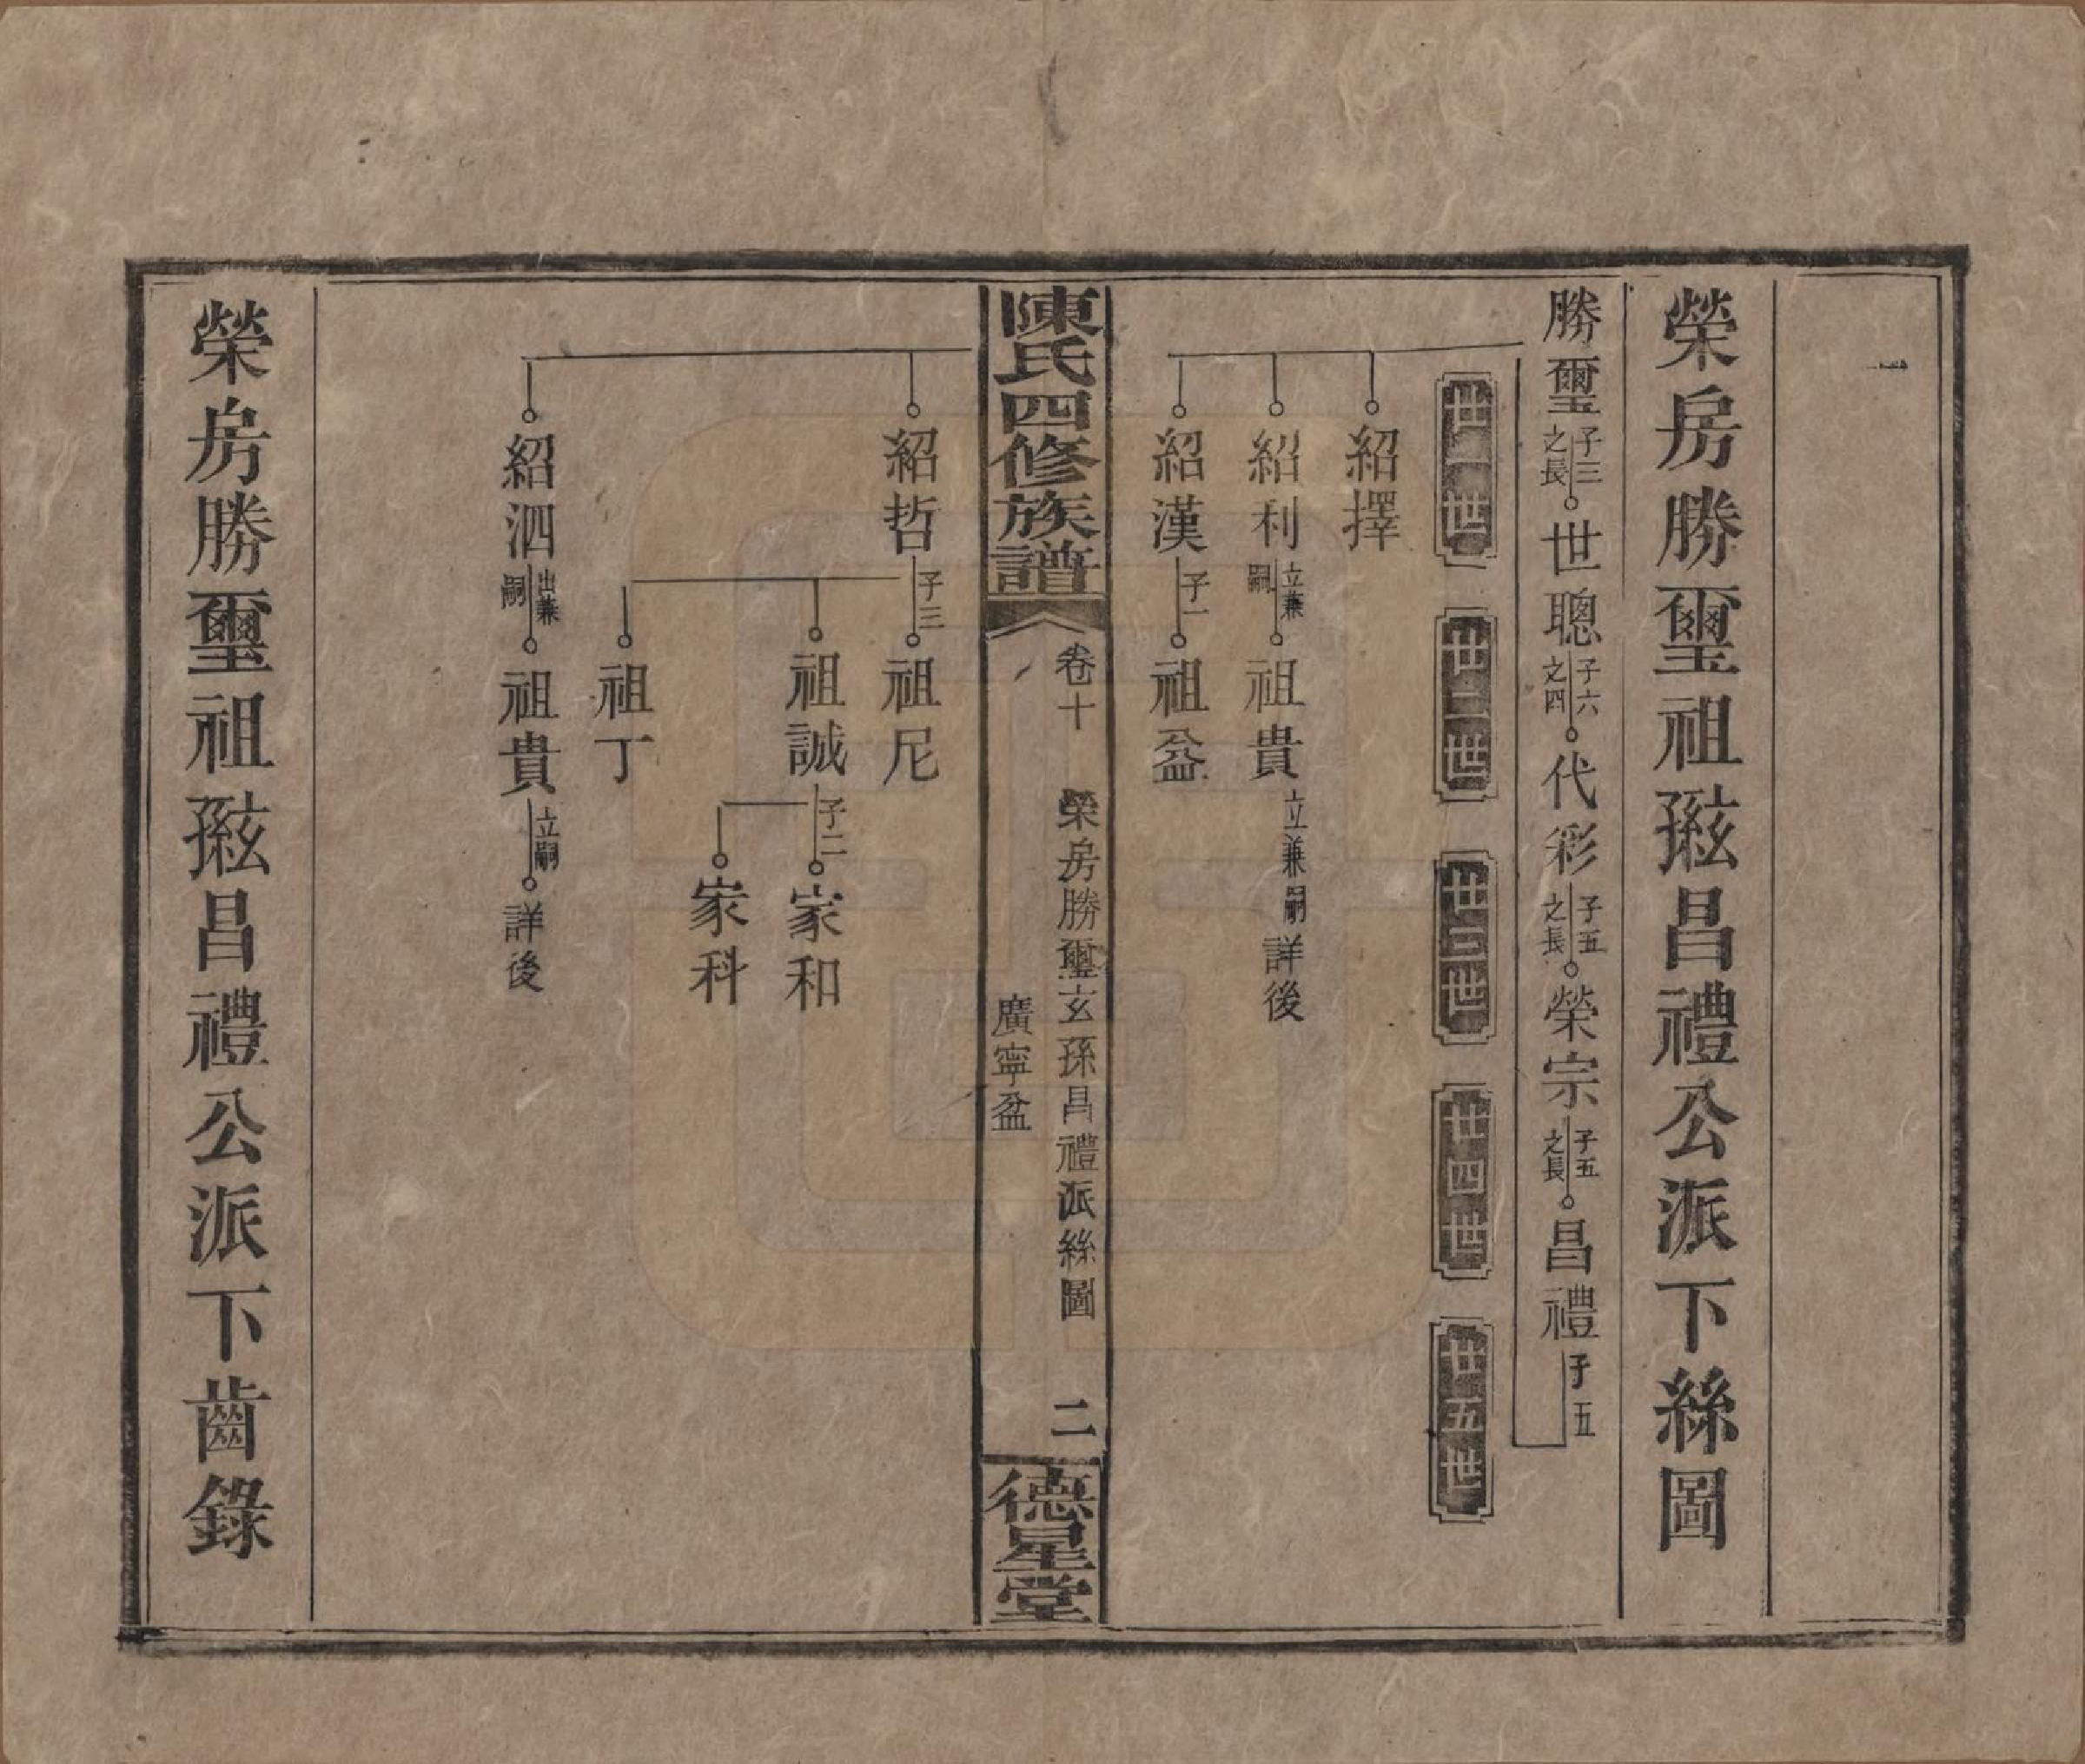 榮房勝璽祖玹昌禮公派下絲圖
勝璽 子三之長 世聰 子六之四 代彩 子五之長 榮宗 子五之長 昌禮 子五
廿一世 廿二世 廿三世 廿四世 廿五世
紹擇
紹利 立兼嗣 祖貴 立兼嗣詳後
紹漢 子一 祖益
陳氏四修族譜 卷十 榮房勝璽玄孫昌禮派絲圖 二 德星堂
廣寧盆
紹哲 子三 祖尼
祖誠 子二 家和
家科
祖丁
紹泗 出兼嗣 祖貴 立嗣 詳後
榮房勝璽祖玹昌禮公派下齒錄